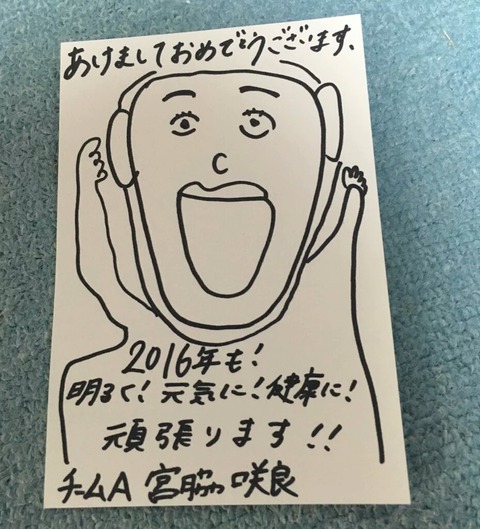 あけましておめでとうございます、
2016年も!
明るく!元気に!健康に!
頑張ります!!
チームA 宮脇咲良